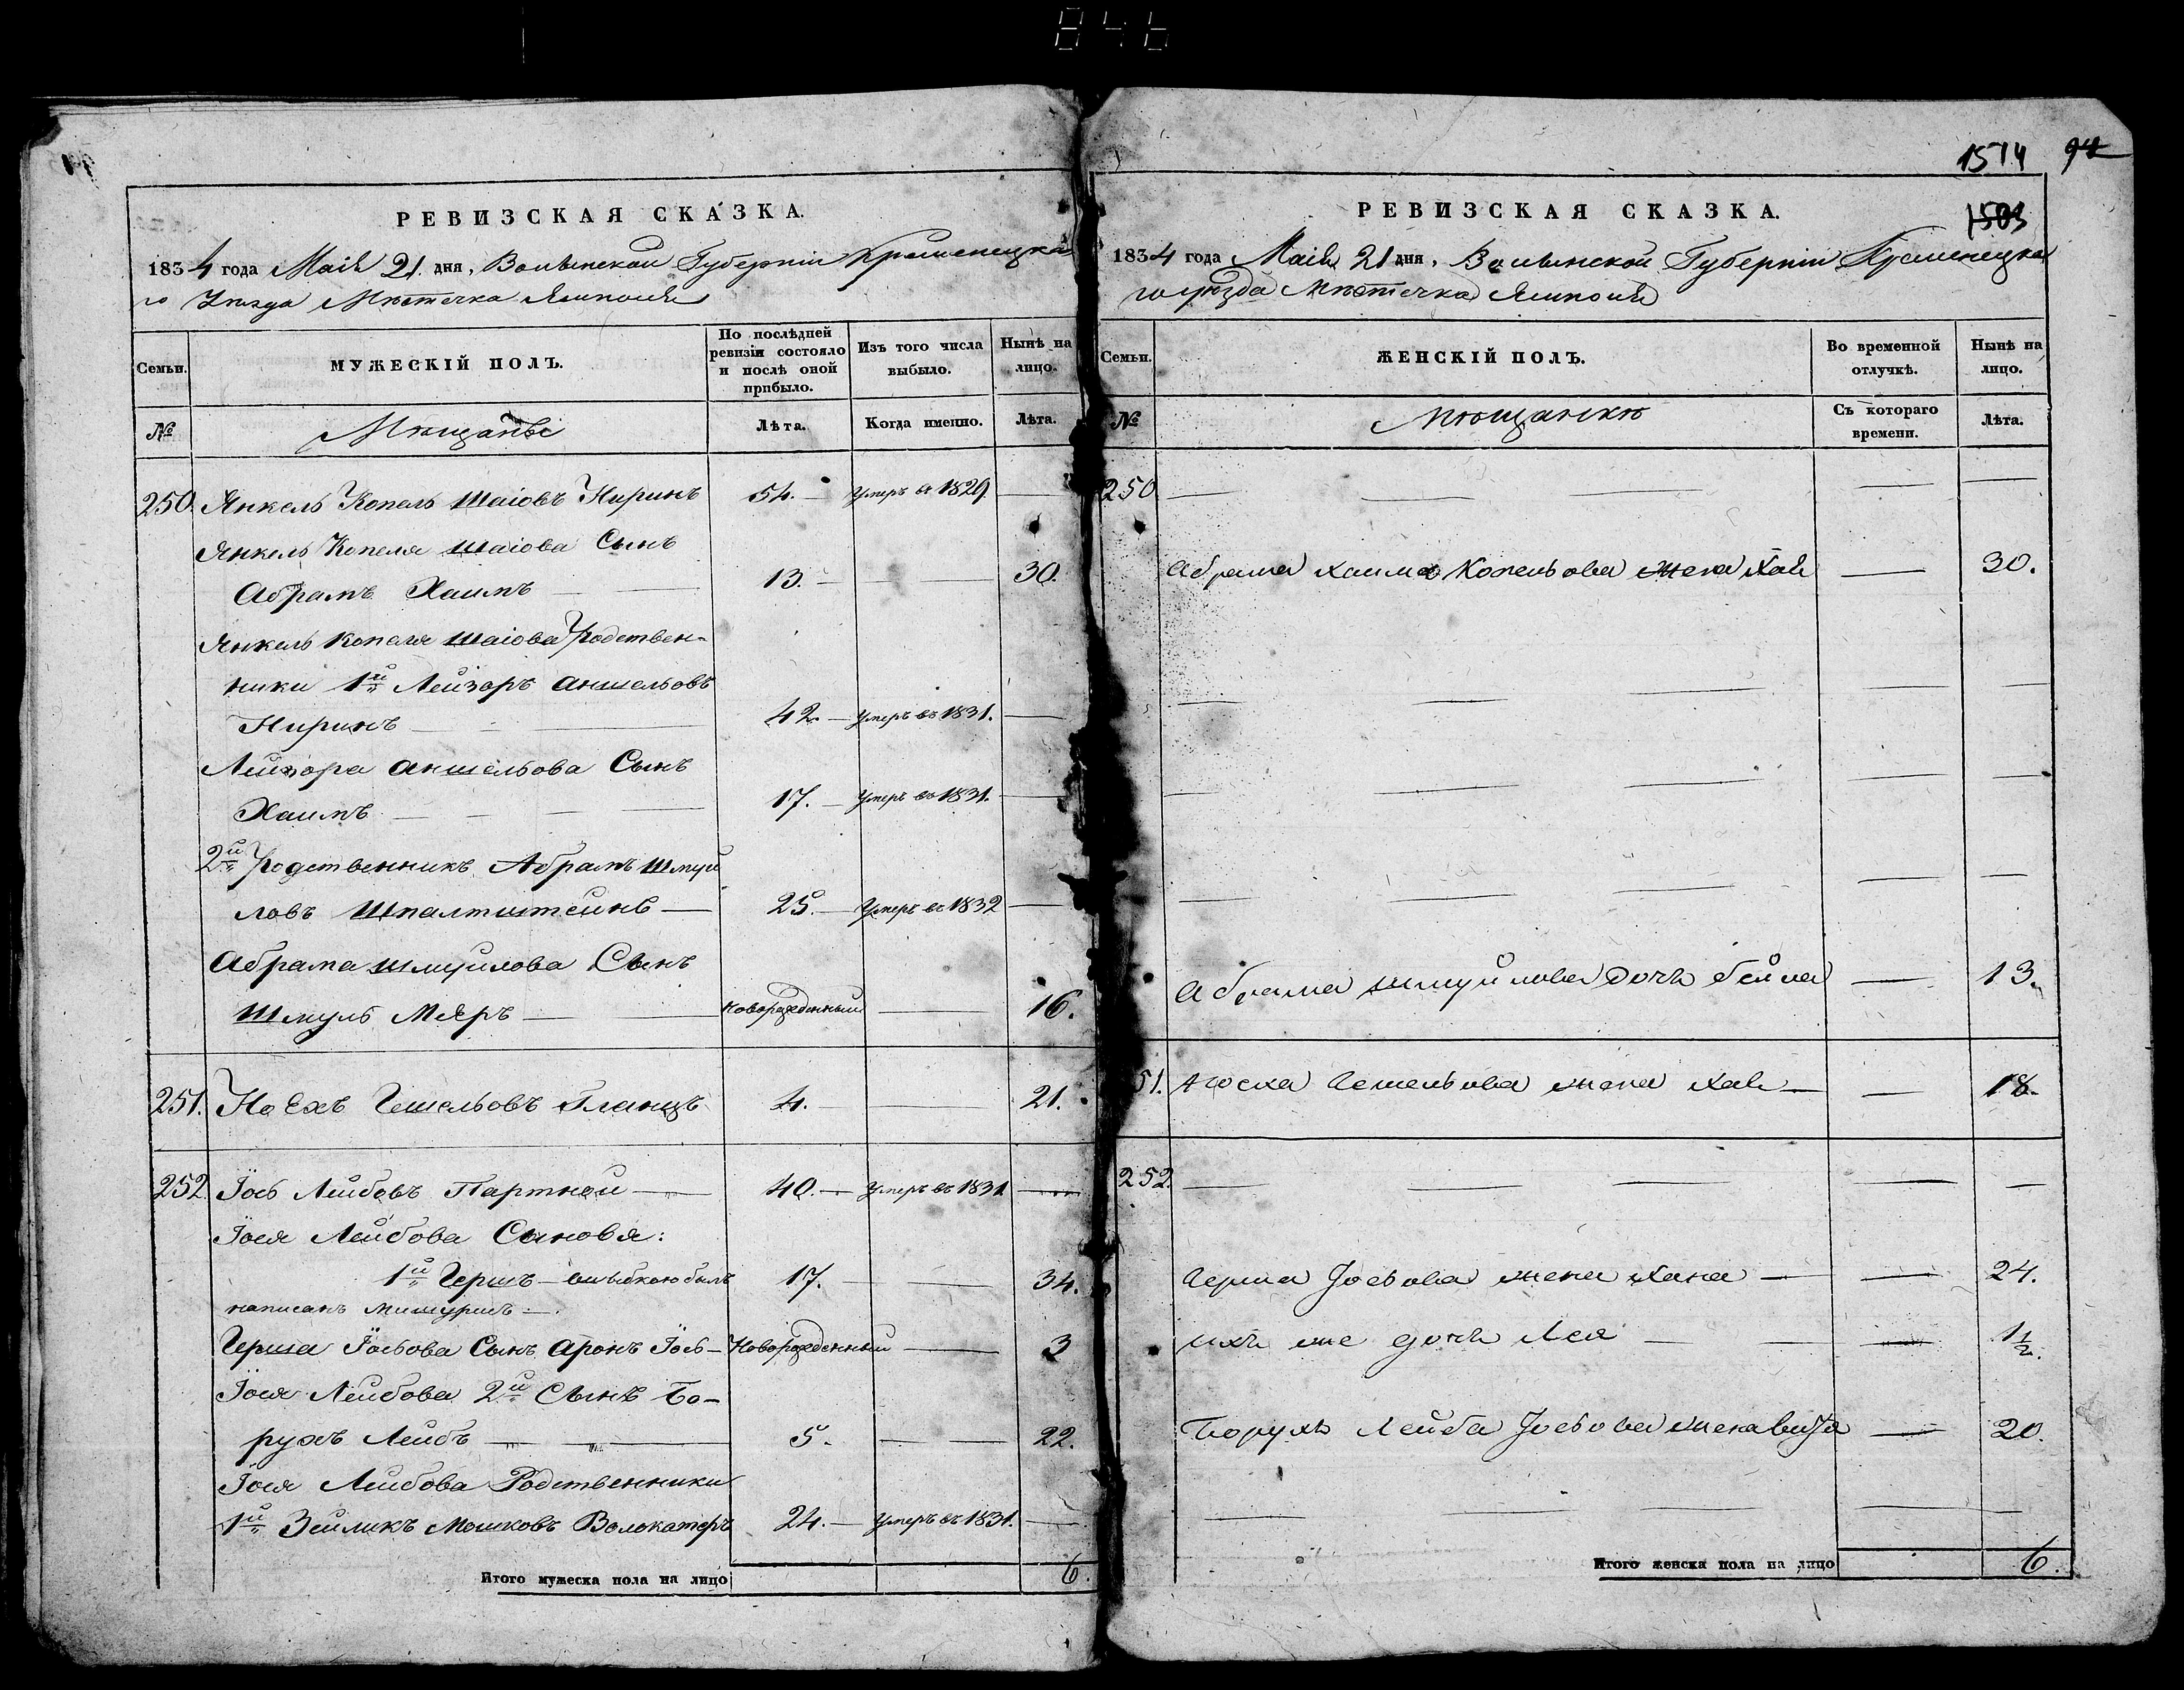 846
РЕВИЗСКАЯ СКАЗКА.
1834 года Маія 21 дня, Волынской Губерніи Кременецка
го Уѣзда Мѣстечка Ямполя
Семьи.
МУЖЕСКІЙ ПОЛЪ.
По послѣдней ревизіи состояло и послѣ оной прибыло.
Изъ того числа выбыло.
Нынѣ на лицо.
№
Мѣщанѣ
Лѣта.
Когда именно.
Лѣта.
250. Янкель Копель Шаіовъ Ниринъ 54. — умеръ въ 1829 —
Янкель Копеля Шаіова Сынъ
Абрамъ Хаимъ — 13. — — 30.
Янкель Копеля Шаіова родствен-
ники 1й Лейзоръ Аншельовъ
Ниринъ — 42. — умеръ въ 1831. —
Лейзора Аншельова Сынъ
Хаимъ — 17. — умеръ въ 1831. —
2й родственникъ Абрамъ Шмуй
ловъ Шпалтштеинъ — 25. — умеръ въ 1832 —
Абрама Шмуйлова Сынъ
Шмуль Меяръ — новорожденный — 16.
251. Ноехъ Гешельовъ Гланцъ 4. — — 21.
252. Іось Лейбовъ Партной — 40. — умеръ въ 1831 —
Іося Лейбова Сыновя:
1й Гершъ — ошибкою былъ 17. — — 34.
написанъ Мишуринъ —.
Герша Іосьова Сынъ Аронъ Іось — Новорожденный — 3
Іося Лейбова 2й Сынъ Бо-
рухъ Лейбъ — 5. — — 22.
Іося Лейбова Родственники
1й Зейликъ Мошковъ Волокатеръ 24. — умеръ въ 1831. —
Итого мужеска пола на лицо 6.
1514 94
1503
РЕВИЗСКАЯ СКАЗКА.
1834 года Маія 21 дня, Волынской Губерніи Кременецка
го уѣзда Мѣстечка Ямполя
Семьи.
ЖЕНСКІЙ ПОЛЪ.
Во временной отлучкѣ.
Нынѣ на лицо.
№
Мѣщанки
Съ котораго времени.
Лѣта.
250 — — — — —
Абрама Хаима Копельова жена Хая — 30.
Абрама Шмуйлова дочь Бейла — 13.
51. Ноеха Гешельова жена Хая — — 18.
252. — — — — —
Герша Іосьова жена Хана — — 24.
ихъ же дочь Лея — — 1½.
Борухъ Лейба Іосьова жена — 20.
Итого женска пола на лицо 6.